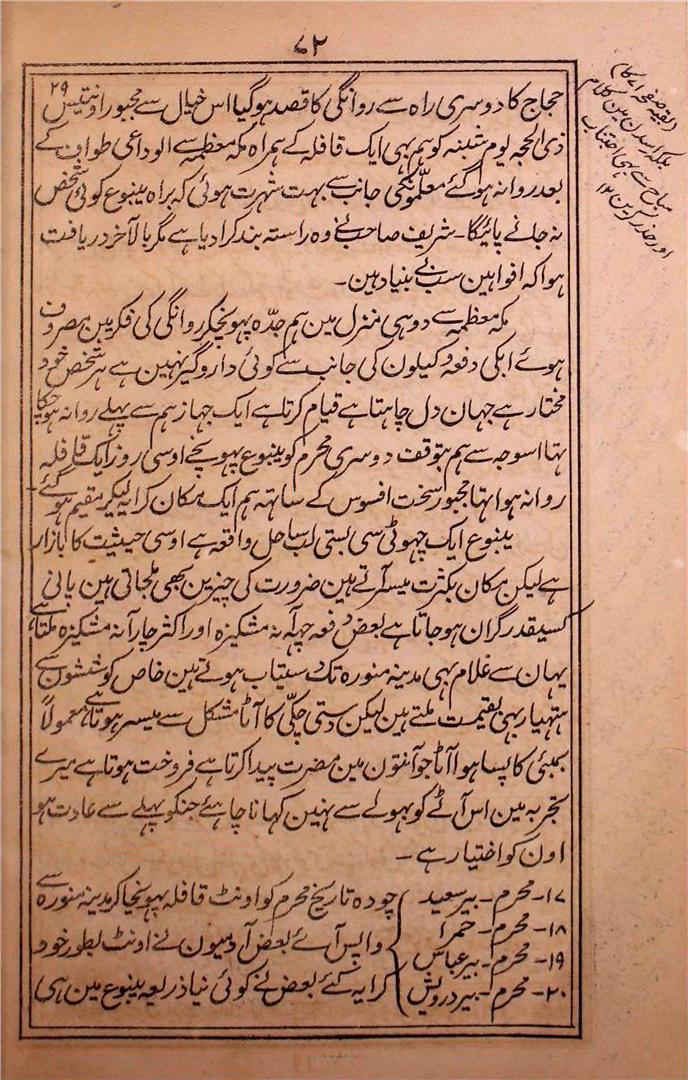 ۷۲
حجاج کا دوسری راہ سے روانگی کا قصد ہوگیا اس خیال سے مجبوراً انتیس ۲۹
ذی الحجہ یوم شنبہ کو ہم بہی ایک قافلہ کے ہمراہ مکہ معظمہ سے الوداعی طواف کے
بعد روانہ ہوگئے معلمونکی جانب سے بہت شہرت ہوئی کہ براہ ینبوع کوئی شخص
نہ جانے پائیگا۔ شریف صاحب نے وہ راستہ بند کرادیا ہے مگر بالآخر دریافت
ہوا کہ افواہین سب بے بنیاد ہین۔
مکہ معظمہ سے دو ہی منزل مین ہم جدّہ پہونچکر روانگی کی فکر مین مصروف
ہوئے ابکی دفعہ وکیلون کی جانب سے کوئی داروگیر نہین ہے ہر شخص خود
مختار ہے جہان دل چاہتا ہے قیام کرتا ہے ایک جہاز ہم سے پہلے روانہ ہوچکا
تہا اسوجہ سے ہم بتوقف دوسری محرم کو ینبوع پہونچے اوسی روز ایک قافلہ
روانہ ہوا تہا مجبور سخت افسوس کے ساتہہ ہم ایک مکان کرایہ لیکر مقیم ہوگئے
ینبوع ایک چہوٹی سی بستی لب ساحل واقعہ ہے اوسی حیثیت کا بازار
ہے لیکن مکان بکثرت میسر آتے ہین ضرورت کی چیزین بھی ملجاتی ہین پانی
کسیقدر گران ہوجاتا ہے بعض دفعہ چہہ آنہ مشکیزہ اور اکثر چار آنہ مشکیزہ ملتا ہے
یہان سے غلام بہی مدینہ منورہ تک دستیاب ہوتے ہین خاص کوششون سے
ہتہیار بہی بقیمت ملتے ہین لیکن دستی چکّی کا آٹا مشکل سے میسر ہوتا ہے معمولاً
بمبئی کا پسا ہوا آٹا جو آنتون مین مضرت پیدا کرتا ہے فروخت ہوتا ہے میرے
تجربہ مین اس آٹے کو بہولے سے نہین کہانا چاہئے جنکو پہلے سے عادت ہو
اون کو اختیار ہے۔
۱۷۔ محرم۔ بیر سعید چودہ تاریخ محرم کو اونٹ قافلہ پہونچا کر مدینہ منورہ سے
۱۸۔ محرم۔ حمرا
۱۹۔ محرم۔ بیر عباس واپس آئے بعض آدمیون نے اونٹ بطور خود
۲۰۔ محرم۔ بیر درویش کرایہ کئے بعض نے کوئی نیا ذریعہ ینبوع مین ہی
(بقیہ صفحہ ۷۱ کا)
بلکہ اسلدن مین کلام
مباح سے بہی اجتناب
اور حذر کرین ۱۲